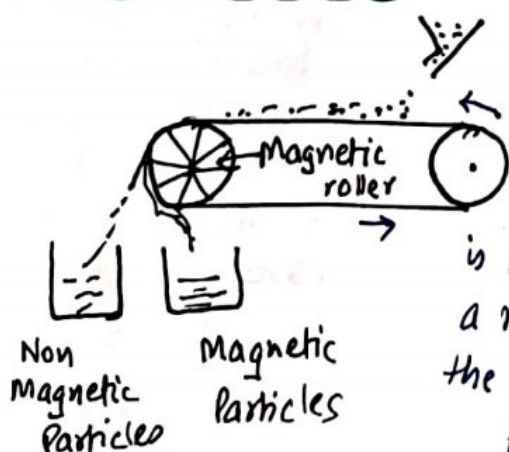 Magnetic
roller
Non
Magnetic
Particles
Magnetic
Particles
is
a
the